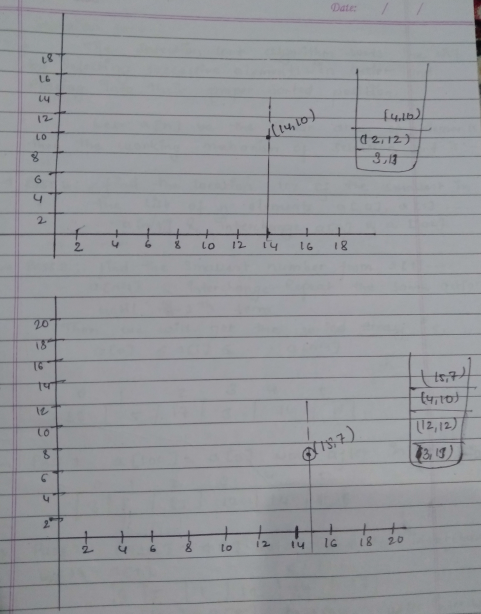 Date: / /
18
16
14
12
10
8
6
4
2
(14,10)
2 4 6 8 10 12 14 16 18
(4,10)
(12,12)
20
18
16
14
12
10
8
6
4
2
(15,7)
2 4 6 8 10 12 14 16 18 20
(15,7)
(4,10)
(12,12)